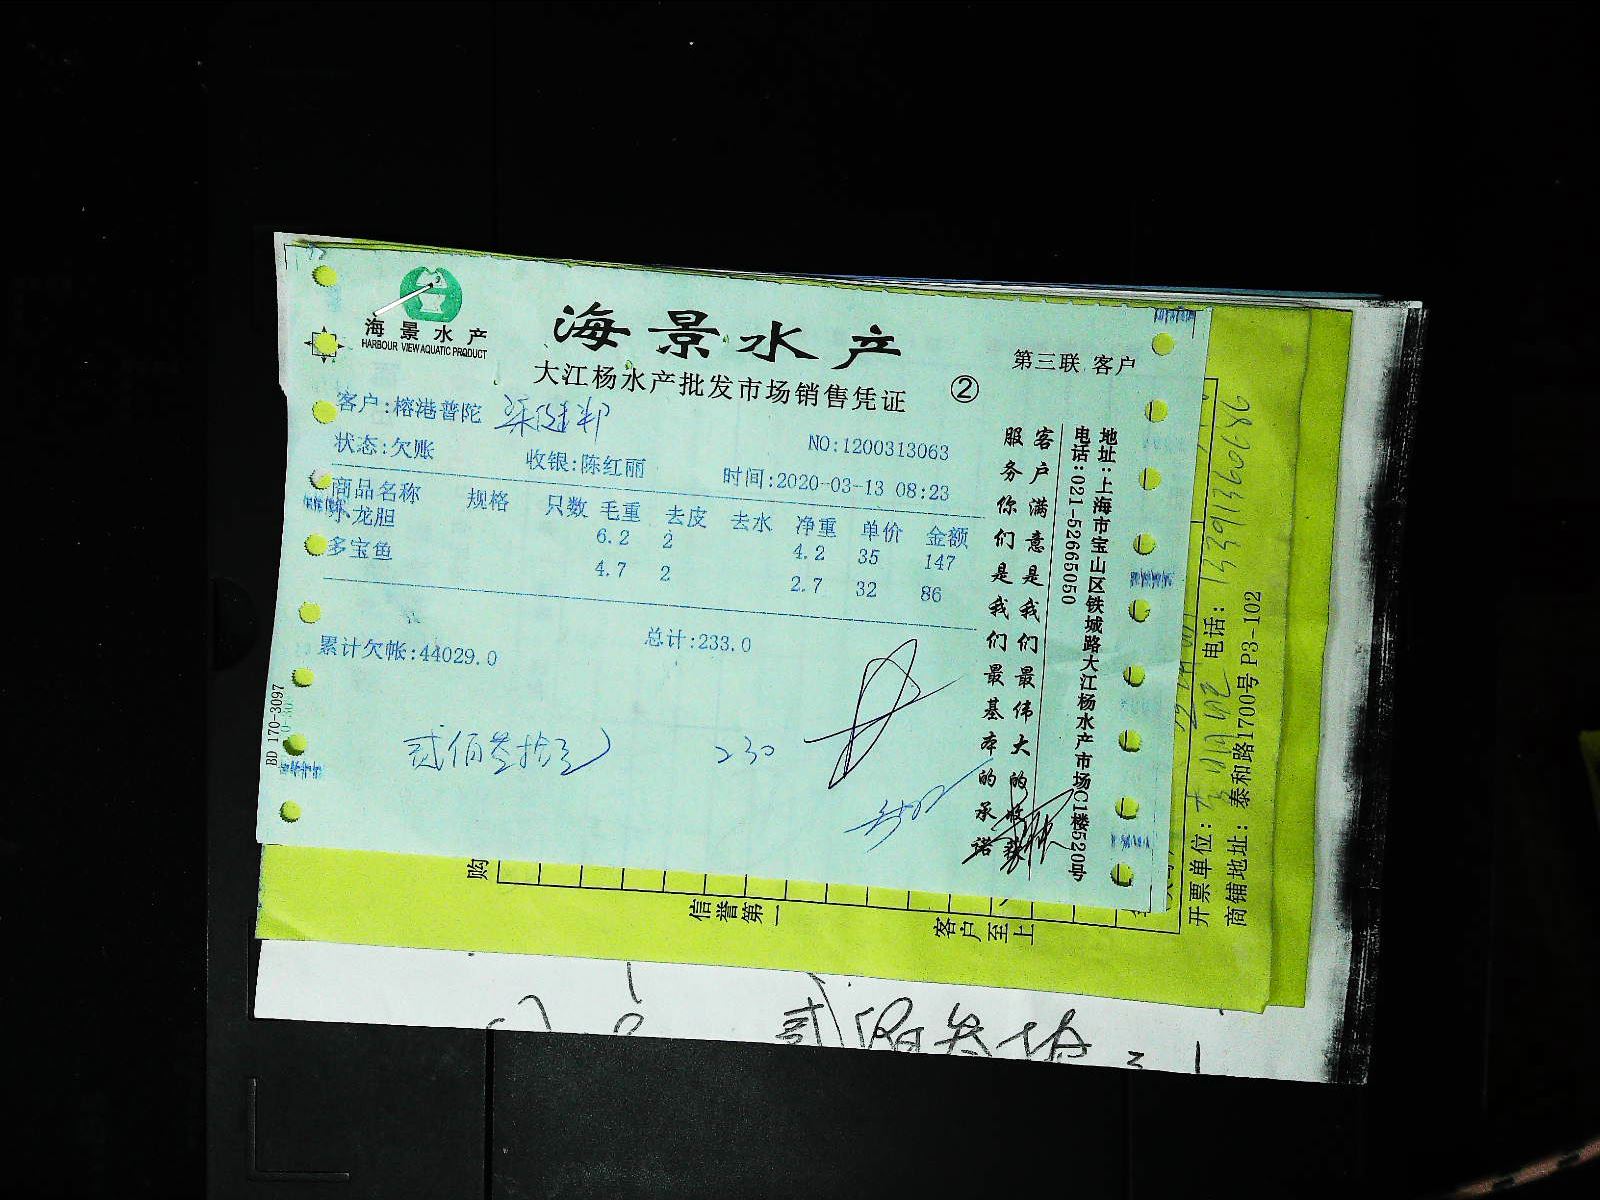 海景水产
HARBOUR VIEW AQUATIC PRODUCT
海景水产
大江杨水产批发市场销售凭证
②
第三联 客户
客户:榕港普陀
NO:1200313063
状态:欠账 收银:陈红丽 时间:2020-03-13 08:23
商品名称 规格 只数 毛重 去皮 去水 净重 单价 金额
小龙胆 6.2 2 4.2 35 147
多宝鱼 4.7 2 2.7 32 86
累计欠帐:44029.0 总计:233.0
贰佰叁拾元 230
BD 170-3097
服务你们是我们最基本的承诺
客户满意是我们最伟大的收获
电话:021-52665050
地址:上海市宝山区铁城路大江杨水产市场C1楼520号
购
信誉第一
客户至上
开票单位: 电话: 13391360686
商铺地址: 泰和路1700号 P3-102